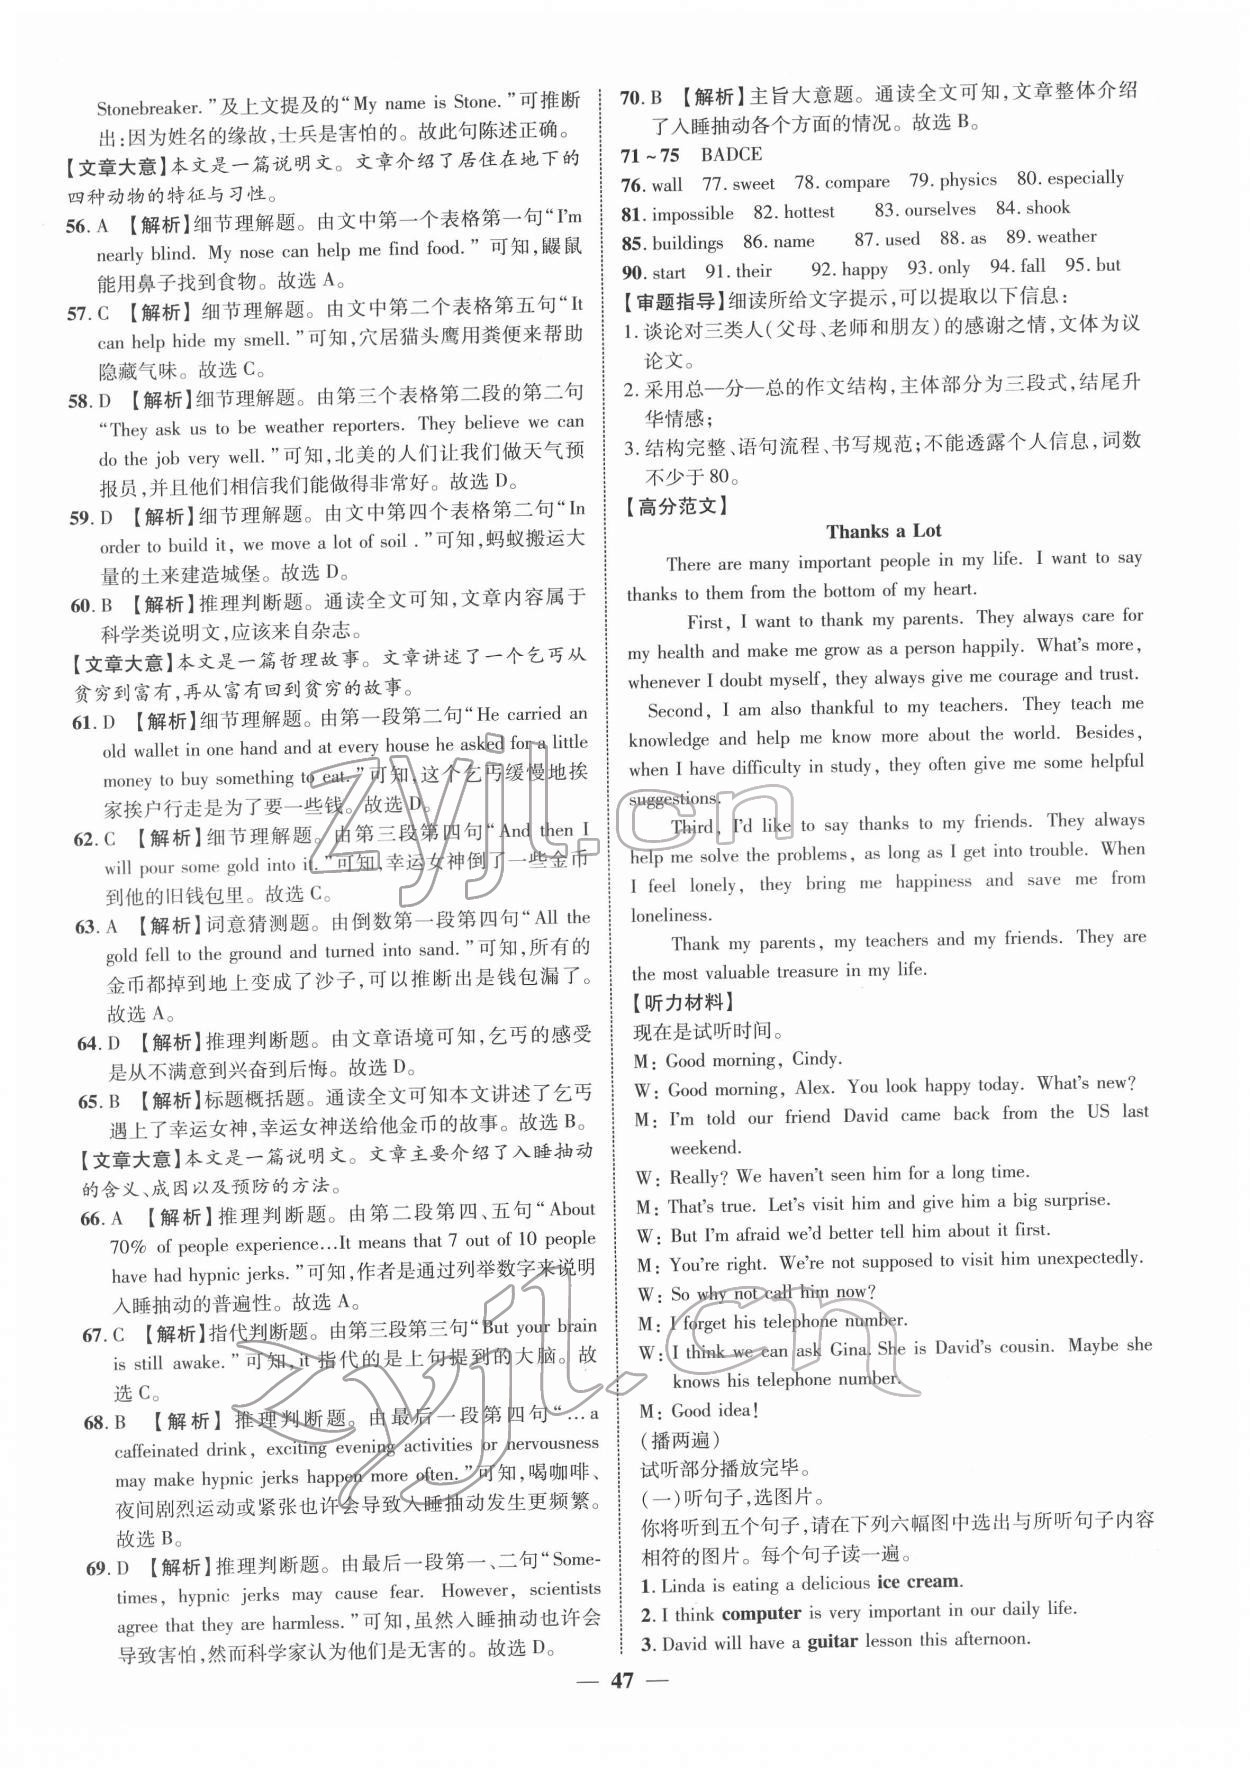 Stonebreaker.”及上文提及的“My name is Stone.”可推断
出:因为姓名的缘故,士兵是害怕的。故此句陈述正确。
【文章大意】本文是一篇说明文。文章介绍了居住在地下的
四种动物的特征与习性。
56. A 【解析】细节理解题。由文中第一个表格第一句“I'm
nearly blind. My nose can help me find food.”可知,鼹鼠
能用鼻子找到食物。故选A。
57. C 【解析】细节理解题。由文中第二个表格第五句“It
can help hide my smell.”可知,穴居猫头鹰用粪便来帮助
隐藏气味。故选C。
58. D 【解析】细节理解题。由第三个表格第二段的第二句
“They ask us to be weather reporters. They believe we can
do the job very well.”可知,北美的人们让我们做天气预
报员,并且他们相信我们能做得非常好。故选D。
59. D 【解析】细节理解题。由文中第四个表格第二句“In
order to build it, we move a lot of soil.”可知,蚂蚁搬运大
量的土来建造城堡。故选D。
60. B 【解析】推理判断题。通读全文可知,文章内容属于
科学类说明文,应该来自杂志。
【文章大意】本文是一篇哲理故事。文章讲述了一个乞丐从
贫穷到富有,再从富有回到贫穷的故事。
61. D 【解析】细节理解题。由第一段第二句“He carried an
old wallet in one hand and at every house he asked for a little
money to buy something to eat.”可知,这个乞丐缓慢地挨
家挨户行走是为了要一些钱。故选D。
62. C 【解析】细节理解题。由第三段第四句“And then I
will pour some gold into it.”可知,幸运女神倒了一些金币
到他的旧钱包里。故选C。
63. A 【解析】词意猜测题。由倒数第一段第四句“All the
gold fell to the ground and turned into sand.”可知,所有的
金币都掉到地上变成了沙子,可以推断出是钱包漏了。
故选A。
64. D 【解析】推理判断题。由文章语境可知,乞丐的感受
是从不满意到兴奋到后悔。故选D。
65. B 【解析】标题概括题。通读全文可知本文讲述了乞丐
遇上了幸运女神,幸运女神送给他金币的故事。故选B。
【文章大意】本文是一篇说明文。文章主要介绍了入睡抽动
的含义、成因以及预防的方法。
66. A 【解析】推理判断题。由第二段第四、五句“About
70% of people experience...It means that 7 out of 10 people
have had hypnic jerks.”可知,作者是通过列举数字来说明
入睡抽动的普遍性。故选A。
67. C 【解析】指代判断题。由第三段第三句“But your brain
is still awake.”可知,it指代的是上句提到的大脑。故
选C。
68. B 【解析】推理判断题。由最后一段第四句“...a
caffeinated drink, exciting evening activities or nervousness
may make hypnic jerks happen more often.”可知,喝咖啡、
夜间剧烈运动或紧张也许会导致入睡抽动发生更频繁。
故选B。
69. D 【解析】推理判断题。由最后一段第一、二句“Some-
times, hypnic jerks may cause fear. However, scientists
agree that they are harmless.”可知,虽然入睡抽动也许会
导致害怕,然而科学家认为他们是无害的。故选D。
70. B 【解析】主旨大意题。通读全文可知,文章整体介绍
了入睡抽动各个方面的情况。故选B。
71~75 BADCE
76. wall 77. sweet 78. compare 79. physics 80. especially
81. impossible 82. hottest 83. ourselves 84. shook
85. buildings 86. name 87. used 88. as 89. weather
90. start 91. their 92. happy 93. only 94. fall 95. but
【审题指导】细读所给文字提示,可以提取以下信息:
1. 谈论对三类人(父母、老师和朋友)的感谢之情,文体为议
论文。
2. 采用总—分—总的作文结构,主体部分为三段式,结尾升
华情感;
3. 结构完整、语句流程、书写规范;不能透露个人信息,词数
不少于80。
【高分范文】
Thanks a Lot
There are many important people in my life. I want to say
thanks to them from the bottom of my heart.
First, I want to thank my parents. They always care for
my health and make me grow as a person happily. What's more,
whenever I doubt myself, they always give me courage and trust.
Second, I am also thankful to my teachers. They teach me
knowledge and help me know more about the world. Besides,
when I have difficulty in study, they often give me some helpful
suggestions.
Third, I'd like to say thanks to my friends. They always
help me solve the problems, as long as I get into trouble. When
I feel lonely, they bring me happiness and save me from
loneliness.
Thank my parents, my teachers and my friends. They are
the most valuable treasure in my life.
【听力材料】
现在是试听时间。
M: Good morning, Cindy.
W: Good morning, Alex. You look happy today. What's new?
M: I'm told our friend David came back from the US last
weekend.
W: Really? We haven't seen him for a long time.
M: That's true. Let's visit him and give him a big surprise.
W: But I'm afraid we'd better tell him about it first.
M: You're right. We're not supposed to visit him unexpectedly.
W: So why not call him now?
M: I forget his telephone number.
W: I think we can ask Gina. She is David's cousin. Maybe she
knows his telephone number.
M: Good idea!
(播两遍)
试听部分播放完毕。
(一)听句子,选图片。
你将听到五个句子,请在下列六幅图中选出与所听句子内容
相符的图片。每个句子读一遍。
1. Linda is eating a delicious ice cream.
2. I think computer is very important in our daily life.
3. David will have a guitar lesson this afternoon.
— 47 —
zyjl.cn
zyjl.cn